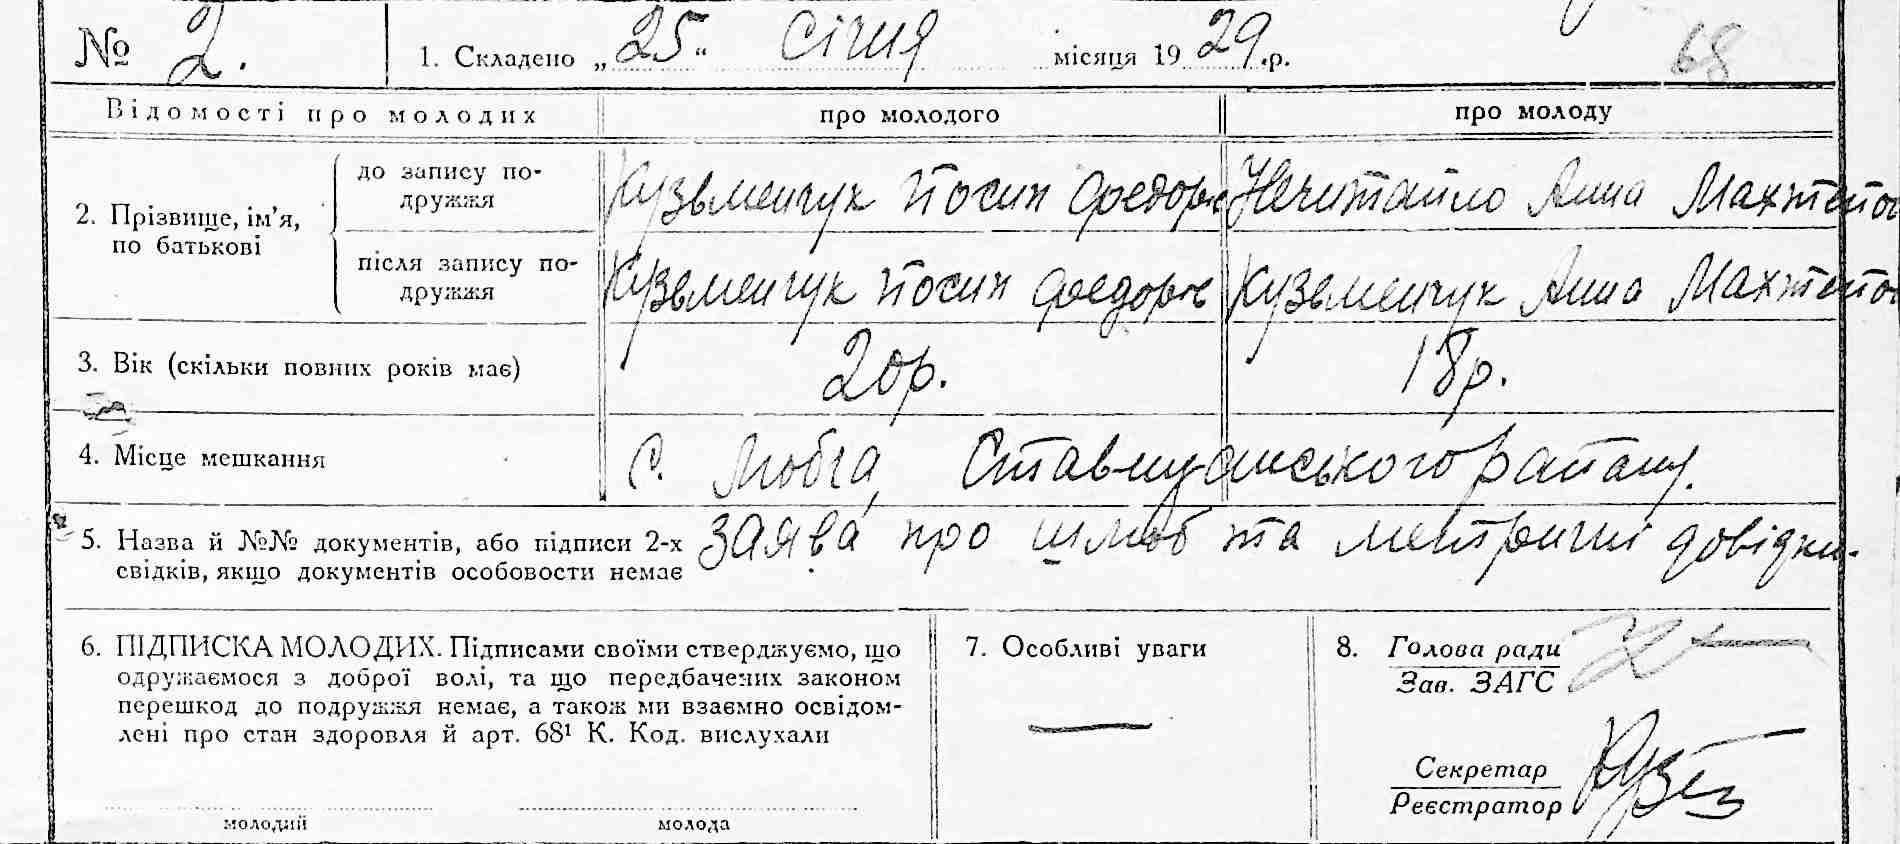 № 2. 1. Складено „25“ Січня місяця 1929.р. 68
Відомості про молодих про молодого про молоду
2. Прізвище, ім’я, по батькові
до запису по-
дружжя
Кузьменчук Йосип Федоров Нечитайло Анна Махтейов
після запису по-
дружжя
Кузьменчук Йосип Федоров Кузьменчук Анна Махтейов
3. Вік (скільки повних років має) 20р. 18р.
4. Місце мешкання с. Ставчанського району.
5. Назва й №№ документів, або підписи 2-х
свідків, якщо документів особовости немає
заява про шлюб та метричні довідки.
6. ПІДПИСКА МОЛОДИХ. Підписами своїми стверджуємо, що
одружаємося з доброї волі, та що передбачених законом
перешкод до подружжя немає, а також ми взаємно освідом-
лені про стан здоровля й арт. 68¹ К. Код. вислухали
молодий молода
7. Особливі уваги
—
8. Голова ради
Зав. ЗАГС
Секретар
Реєстратор